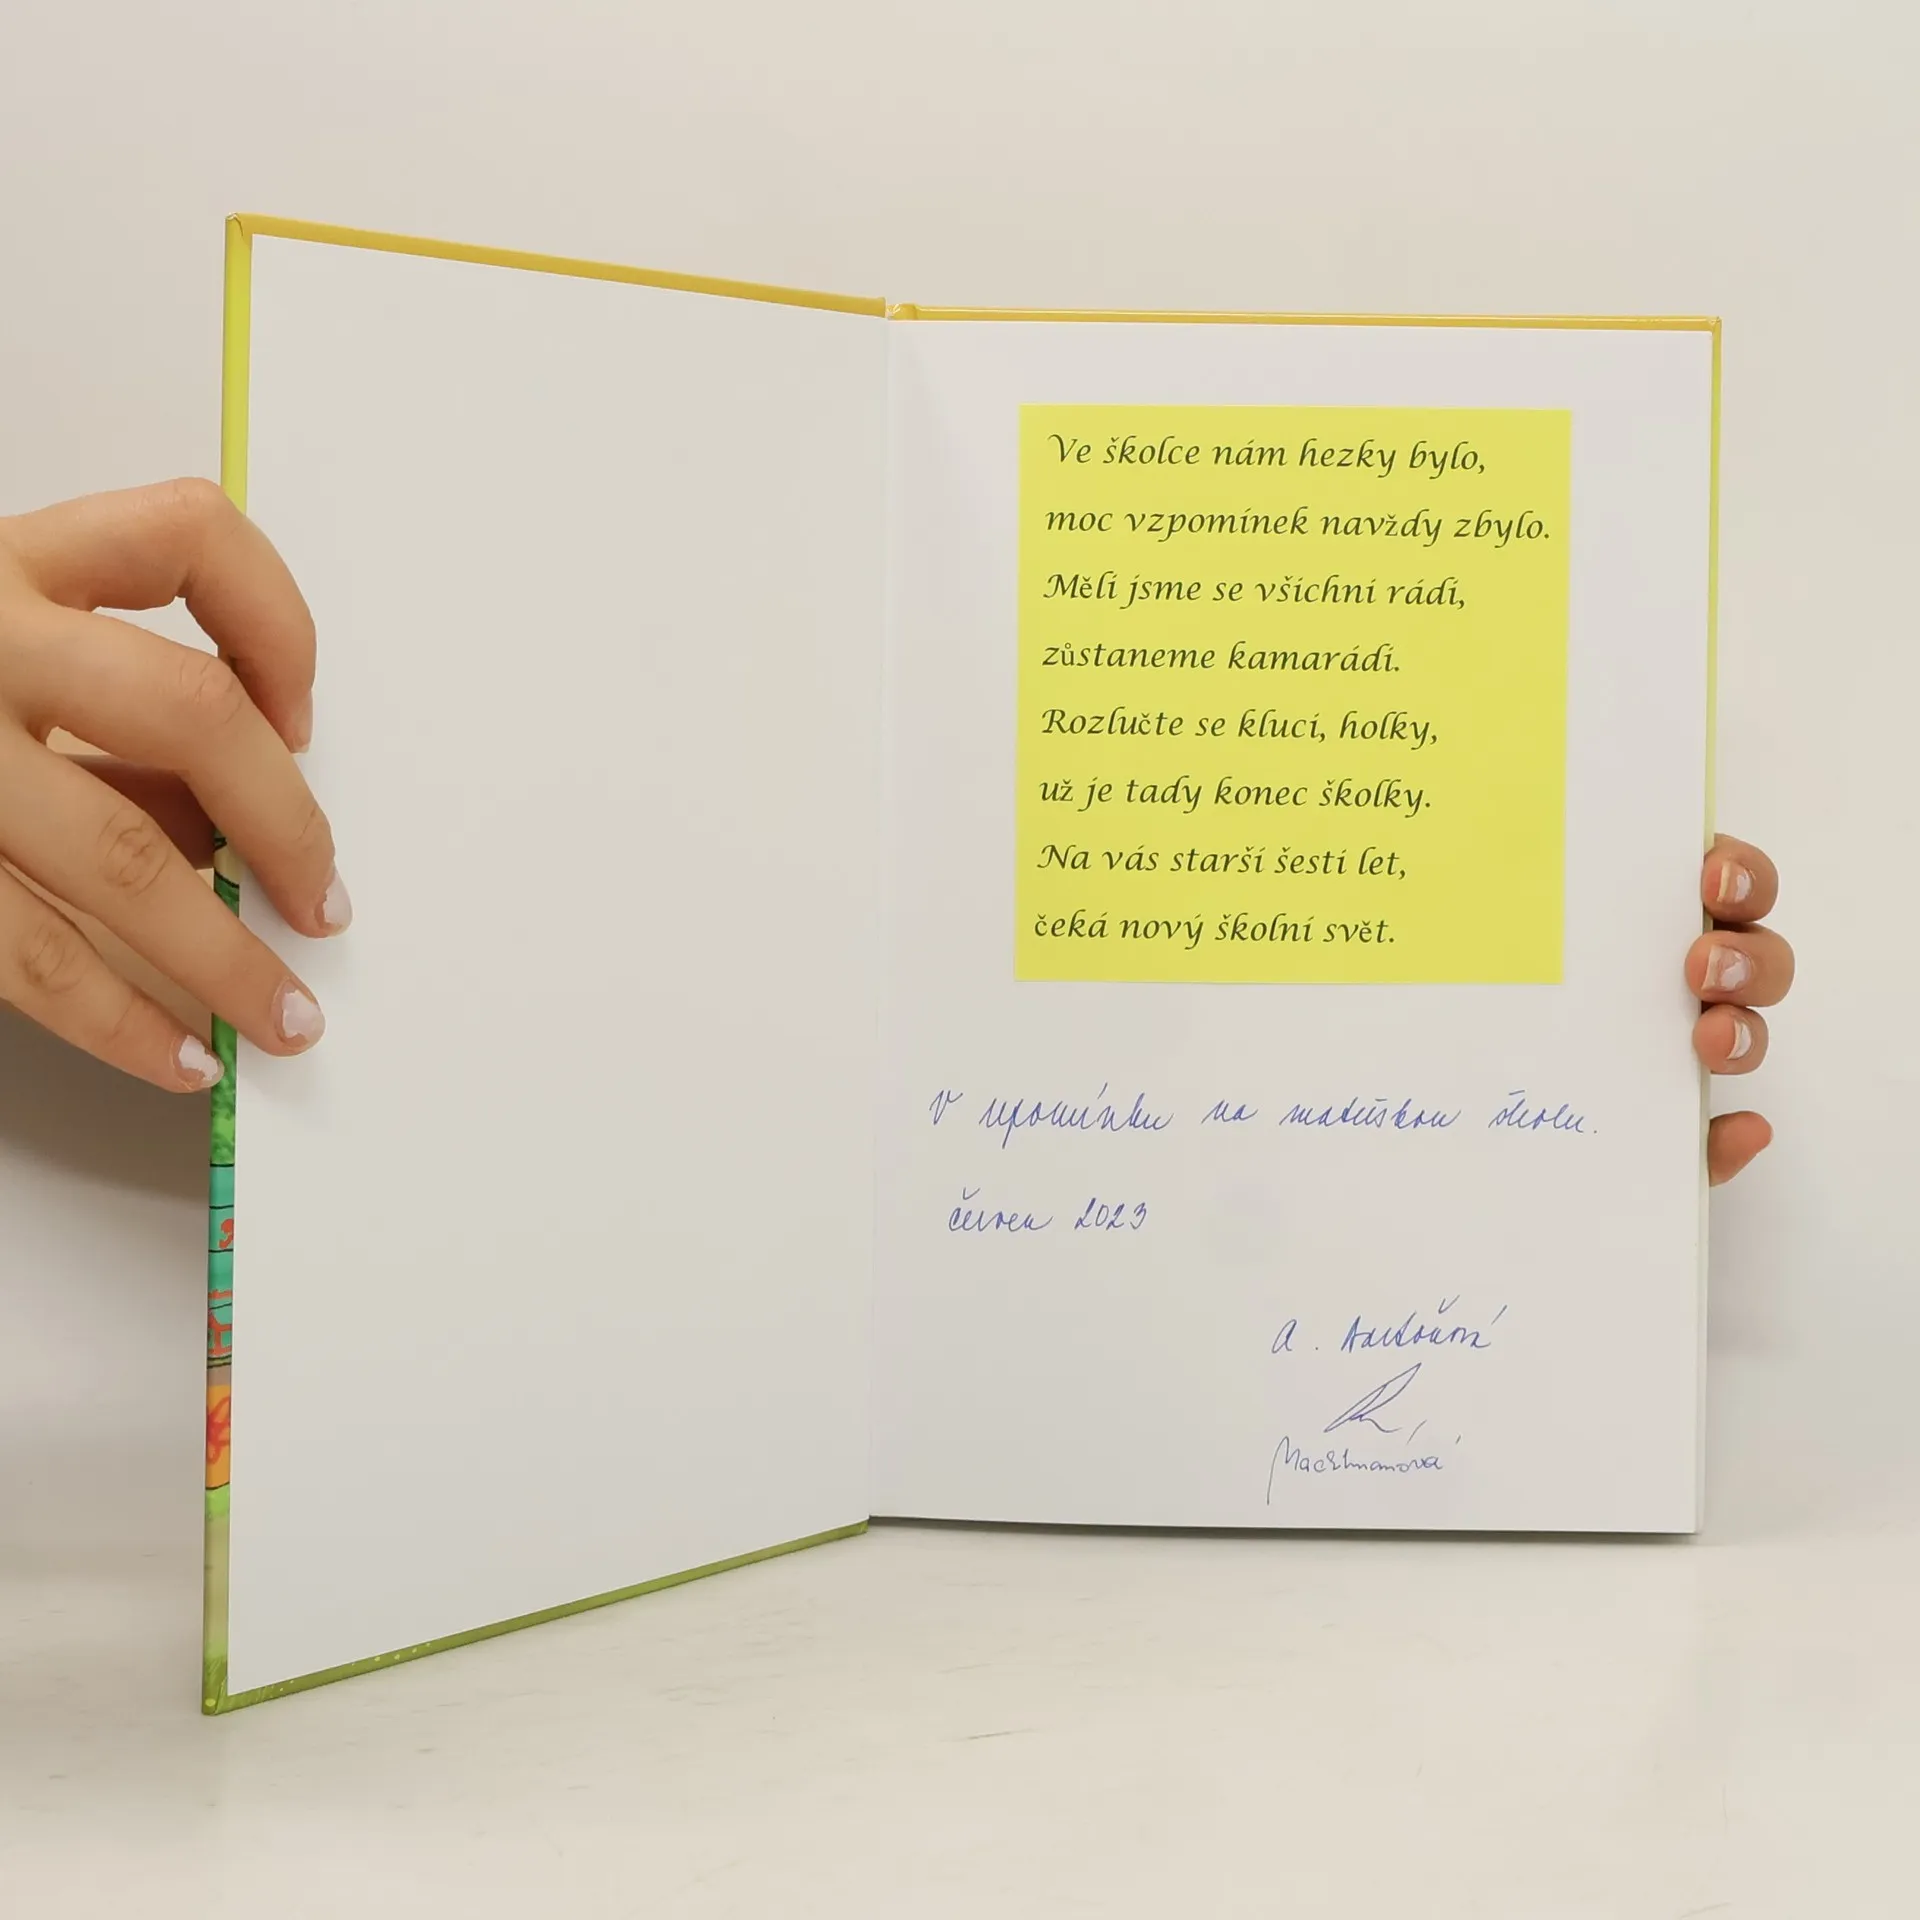 Ve školce nám hezky bylo,
moc vzpomínek navždy zbylo.
Měli jsme se všichni rádi,
zůstaneme kamarádi.
Rozlučte se kluci, holky,
už je tady konec školky.
Na vás starší šesti let,
čeká nový školní svět.
V upomínku na mateřskou školu.
červen 2023
A. Antoňová